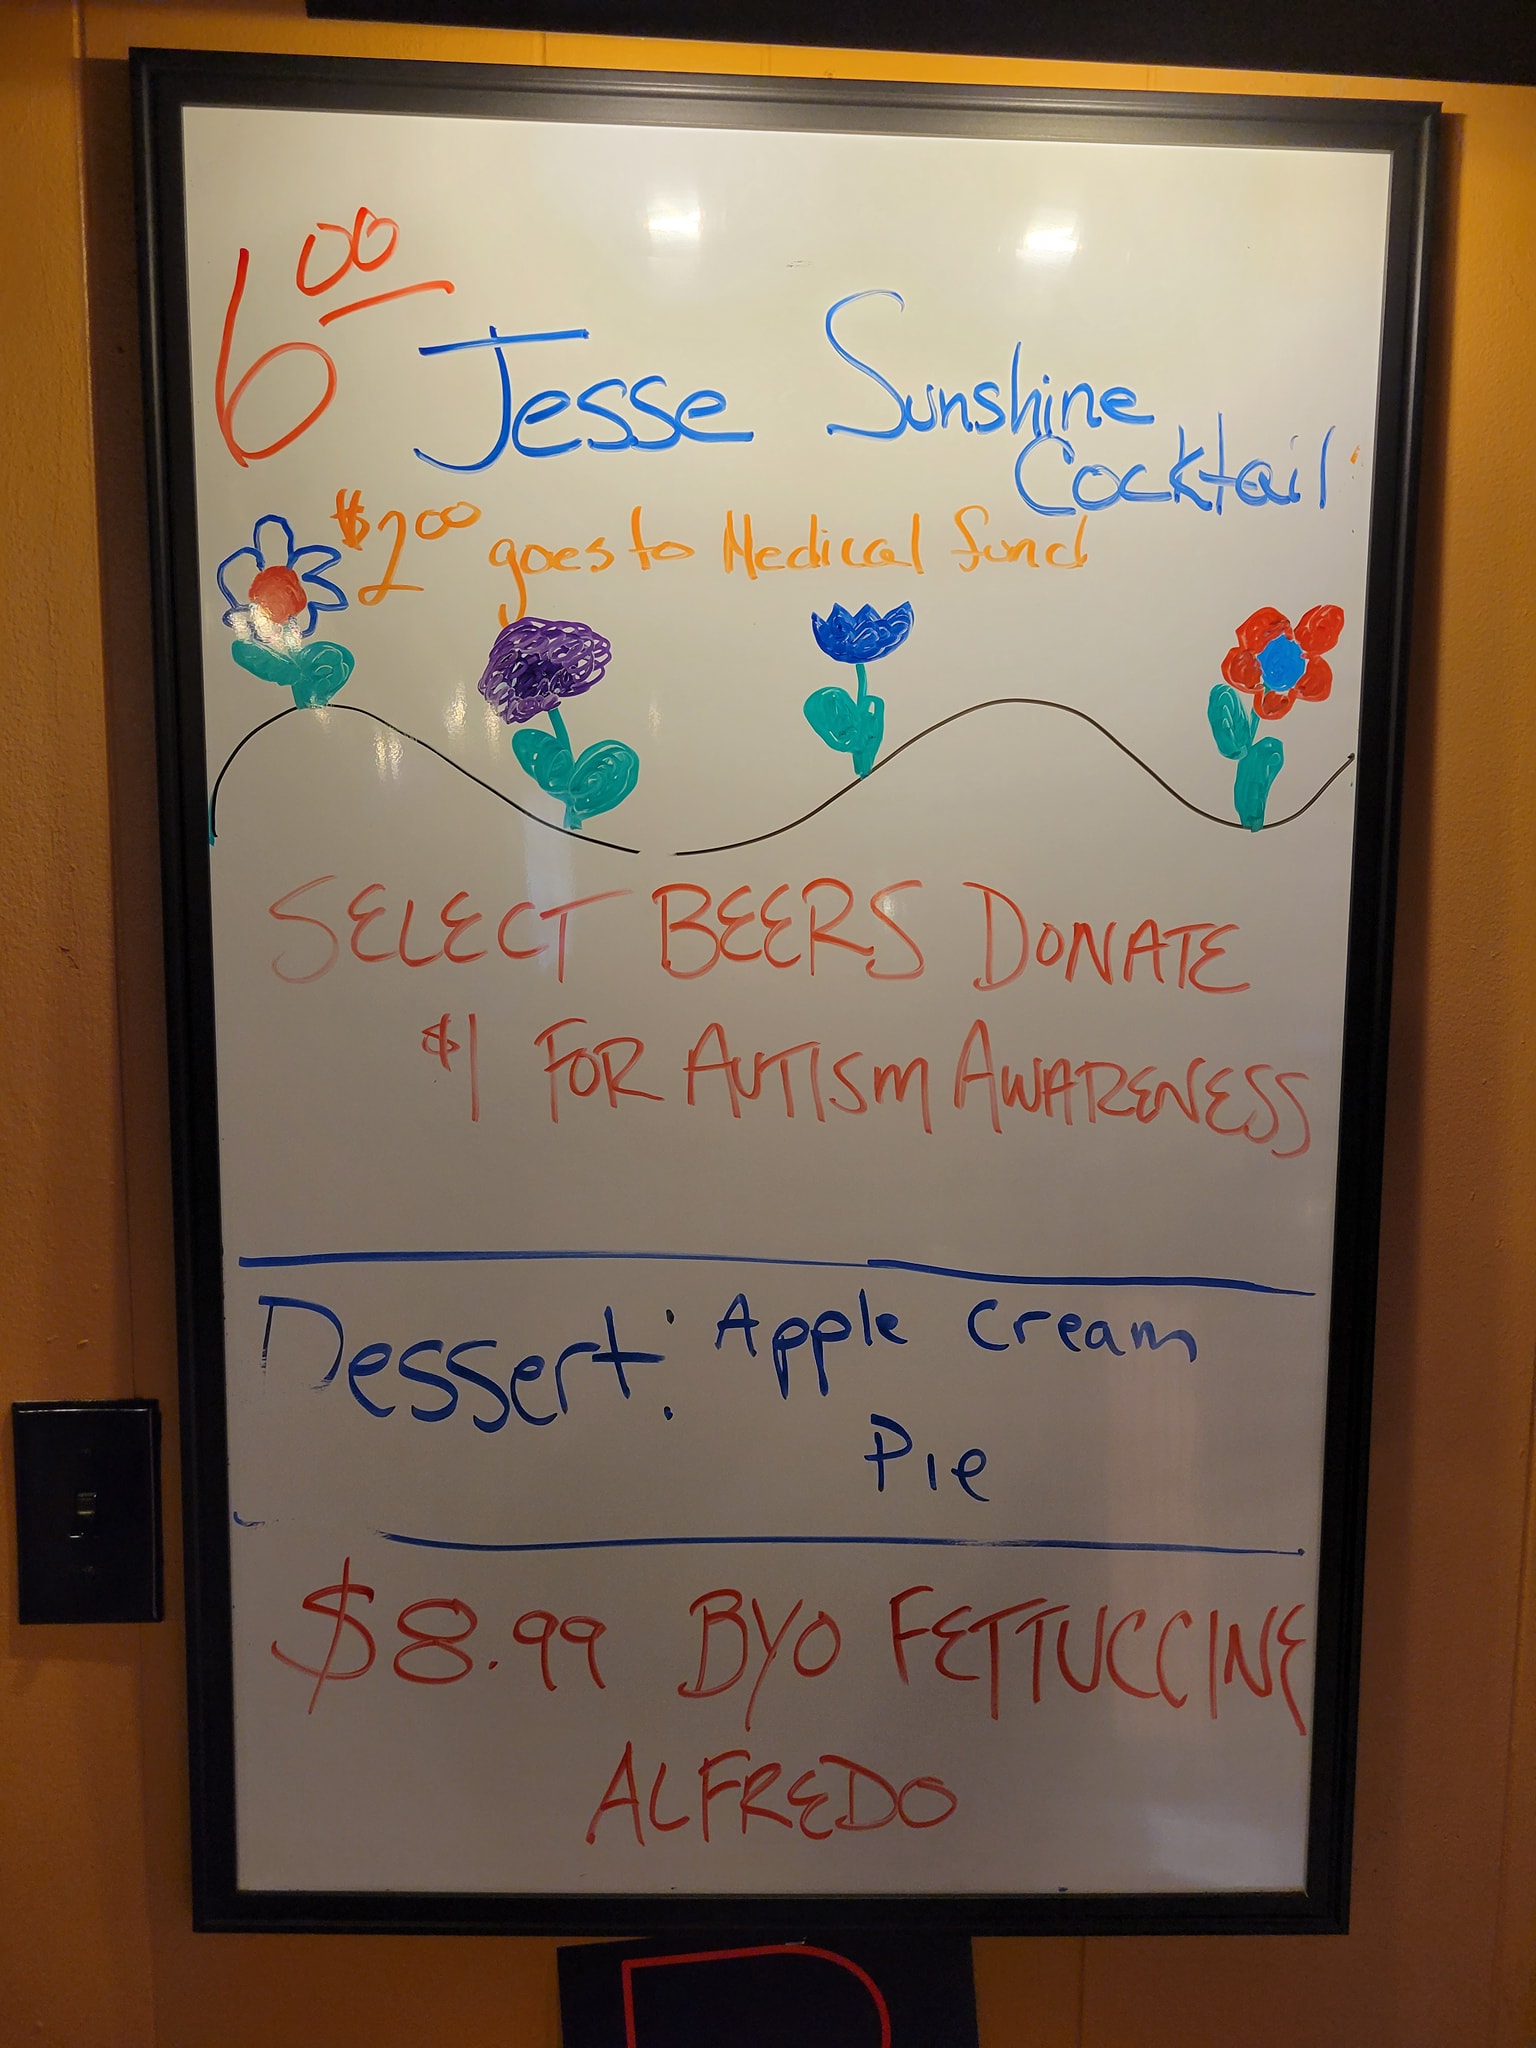 6 00 Jesse Sunshine
Cocktail
$2 00 goes to Medical fund
SELECT BEERS DONATE
$1 FOR AUTISM AWARENESS
Dessert: Apple Cream
Pie
$8.99 BYO FETTUCCINE
ALFREDO